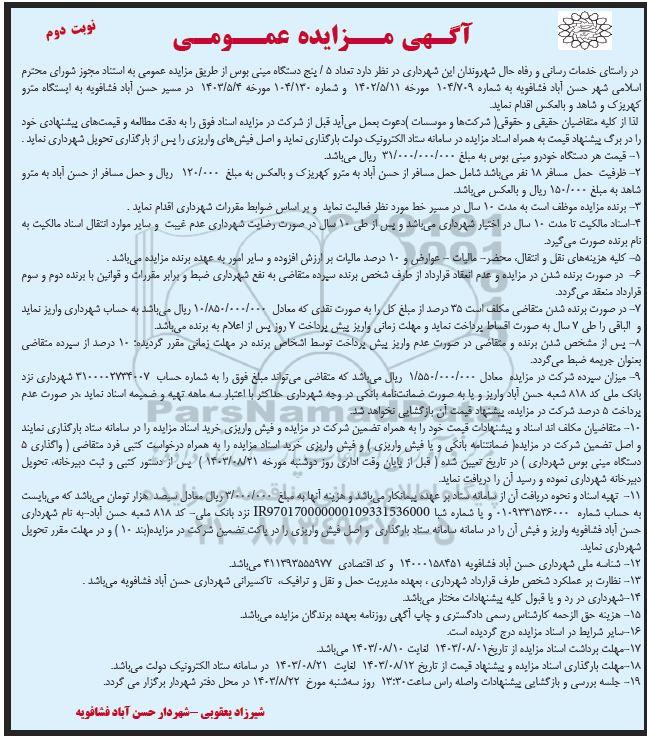 نوبت دوم
آگـهی مـــزایده عمـــومـی
در راستای خدمات رسانی و رفاه حال شهروندان این شهرداری در نظر دارد تعداد ۵ / پنج دستگاه مینی بوس از طریق مزایده عمومی به استناد مجوز شورای محترم
اسلامی شهر حسن آباد فشافویه به شماره ۱۰۴/۷۰۹ مورخه ۱۴۰۲/۵/۱۱ و شماره ۱۰۴/۱۳۰ مورخه ۱۴۰۳/۵/۴ در مسیر حسن آباد فشافویه به ایستگاه مترو
کهریزک و شاهد و بالعکس اقدام نماید.
لذا از کلیه متقاضیان حقیقی و حقوقی( شرکت‌ها و موسسات )دعوت بعمل می‌آید قبل از شرکت در مزایده اسناد فوق را به دقت مطالعه و قیمت‌های پیشنهادی خود
را در برگ پیشنهاد قیمت به همراه اسناد مزایده در سامانه ستاد الکترونیک دولت بارگذاری نماید و اصل فیش‌های واریزی را پس از بارگذاری تحویل شهرداری نماید .
۱- قیمت هر دستگاه خودرو مینی بوس به مبلغ ۳۱/۰۰۰/۰۰۰/۰۰۰ ریال می‌باشد.
۲- ظرفیت حمل مسافر ۱۸ نفر می‌باشد شامل حمل مسافر از حسن آباد به مترو کهریزک و بالعکس به مبلغ ۱۲۰/۰۰۰ ریال و حمل مسافر از حسن آباد به مترو
شاهد به مبلغ ۱۵۰/۰۰۰ ریال و بالعکس می‌باشد.
۳- برنده مزایده موظف است به مدت ۱۰ سال در مسیر خط مورد نظر فعالیت نماید و بر اساس ضوابط مقررات شهرداری اقدام نماید .
۴-اسناد مالکیت تا مدت ۱۰ سال در اختیار شهرداری می‌باشد و پس از طی ۱۰ سال در صورت رضایت شهرداری عدم غیبت و سایر موارد انتقال اسناد مالکیت به
نام برنده صورت می‌گیرد.
۵- کلیه هزینه‌های نقل و انتقال، محضر- مالیات - عوارض و ۱۰ درصد مالیات بر ارزش افزوده و سایر امور به عهده برنده مزایده می‌باشد .
۶- در صورت برنده شدن در مزایده و عدم انعقاد قرارداد از طرف شخص برنده سپرده متقاضی به نفع شهرداری ضبط و برابر مقررات و قوانین با برنده دوم و سوم
قرارداد منعقد می‌گردد.
۷- در صورت برنده شدن متقاضی مکلف است ۳۵ درصد از مبلغ کل را به صورت نقدی که معادل ۱۰/۸۵۰/۰۰۰/۰۰۰ ریال می‌باشد به حساب شهرداری واریز نماید
و الباقی را طی ۷ سال به صورت اقساط پرداخت نماید و مهلت زمانی واریز پیش پرداخت ۷ روز پس از اعلام به برنده می‌باشد.
۸- پس از مشخص شدن برنده و متقاضی در صورت عدم واریز پیش پرداخت توسط اشخاص برنده در مهلت زمانی مقرر گردیده؛ ۱۰ درصد از سپرده متقاضی
بعنوان جریمه ضبط می‌گردد.
۹- میزان سپرده شرکت در مزایده معادل ۱/۵۵۰/۰۰۰/۰۰۰ ریال می‌باشد که متقاضی می‌تواند مبلغ فوق را به شماره حساب ۳۱۰۰۰۰۲۷۳۴۰۰۷ شهرداری نزد
بانک ملی کد ۸۱۸ شعبه حسن آباد واریز و یا به صورت ضمانت‌نامه بانکی در وجه شهرداری حداکثر با اعتبار سه ماهه تهیه و ضمیمه اسناد نماید ،در صورت عدم
پرداخت ۵ درصد شرکت در مزایده، پیشنهاد قیمت آن بازگشایی نخواهد شد.
۱۰- متقاضیان مکلف اند اسناد و پیشنهادات قیمت خود را به همراه تضمین شرکت در مزایده و فیش واریزی خرید اسناد مزایده را در سامانه ستاد بارگذاری نمایند
و اصل تضمین شرکت در مزایده( ضمانتنامه بانکی و یا فیش واریزی ) و فیش واریزی خرید اسناد مزایده را به همراه درخواست کتبی فرد متقاضی ( واگذاری ۵
دستگاه مینی بوس شهرداری ) در تاریخ تعیین شده ( قبل از پایان وقت اداری روز دوشنبه مورخه ۱۴۰۳/۰۸/۲۱ ) پس از دستور کتبی و ثبت دبیرخانه، تحویل
دبیرخانه شهرداری نموده و رسید آن را دریافت نماید.
۱۱- تهیه اسناد و نحوه دریافت آن از سامانه ستاد بر عهده پیمانکار می‌باشد و هزینه آنها به مبلغ ۳/۰۰۰/۰۰۰ ریال معادل سیصد هزار تومان می‌باشد که می‌بایست
به حساب شماره ۰۱۰۹۳۳۱۵۳۶۰۰۰ و یا شماره شبا IR970170000000109331536000 نزد بانک ملی- کد ۸۱۸ شعبه حسن آباد-به نام شهرداری
حسن آباد فشافویه واریز و فیش آن را در سامانه سامانه ستاد بارگذاری و اصل فیش واریزی را در پاکت تضمین شرکت در مزایده(بند ۱۰ ) و در مهلت مقرر تحویل
شهرداری نماید.
۱۲- شناسه ملی شهرداری حسن آباد فشافویه ۱۴۰۰۰۱۵۸۴۵۱ و کد اقتصادی ۴۱۱۳۹۳۵۵۵۹۷۷ می‌باشد.
۱۳- نظارت بر عملکرد شخص طرف قرارداد شهرداری ، بعهده مدیریت حمل و نقل و ترافیک، تاکسیرانی شهرداری حسن آباد فشافویه می‌باشد .
۱۴-شهرداری در رد و یا قبول کلیه پیشنهادات مختار می‌باشد.
۱۵- هزینه حق الزحمه کارشناس رسمی دادگستری و چاپ آگهی روزنامه بعهده برندگان مزایده می‌باشد.
۱۶-سایر شرایط در اسناد مزایده درج گردیده است.
۱۷-مهلت برداشت اسناد مزایده از تاریخ ۱۴۰۳/۰۸/۰۱ لغایت ۱۴۰۳/۰۸/۱۰ می‌باشد.
۱۸-مهلت بارگذاری اسناد مزایده و پیشنهاد قیمت از تاریخ ۱۴۰۳/۰۸/۱۲ لغایت ۱۴۰۳/۰۸/۲۱ در سامانه ستاد الکترونیک دولت می‌باشد.
۱۹- جلسه بررسی و بازگشایی پیشنهادات واصله راس ساعت ۱۳:۳۰ روز سه‌شنبه مورخ ۱۴۰۳/۸/۲۲ در محل دفتر شهردار برگزار می گردد.
شیرزاد یعقوبی –شهردار حسن آباد فشافویه